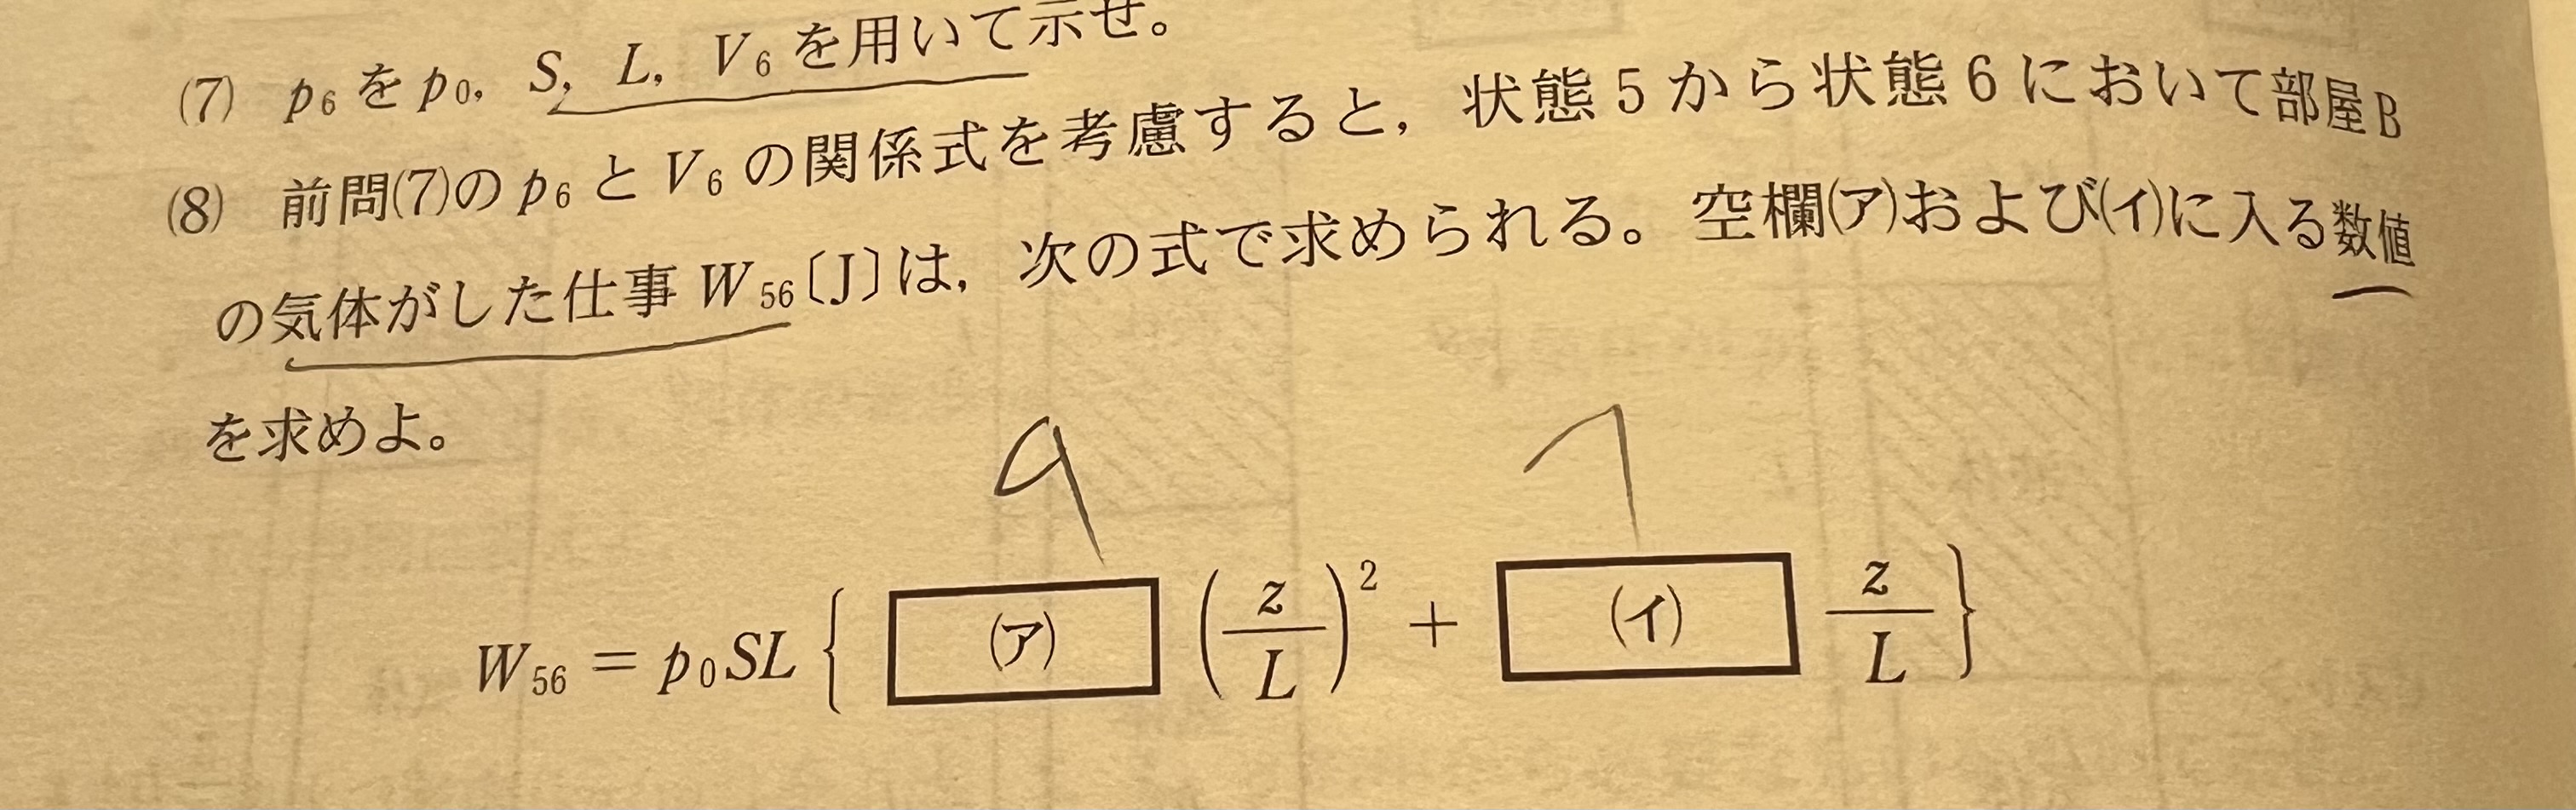 (7) p₆をp₀, S, L, V₆を用いて示せ。
(8) 前問(7)のp₆とV₆の関係式を考慮すると, 状態5から状態6において部屋B
の気体がした仕事W₅₆〔J〕は, 次の式で求められる。空欄(ア)および(イ)に入る数値
を求めよ。
9 7
W₅₆ = p₀SL { (ア) (z/L)² + (イ) z/L }